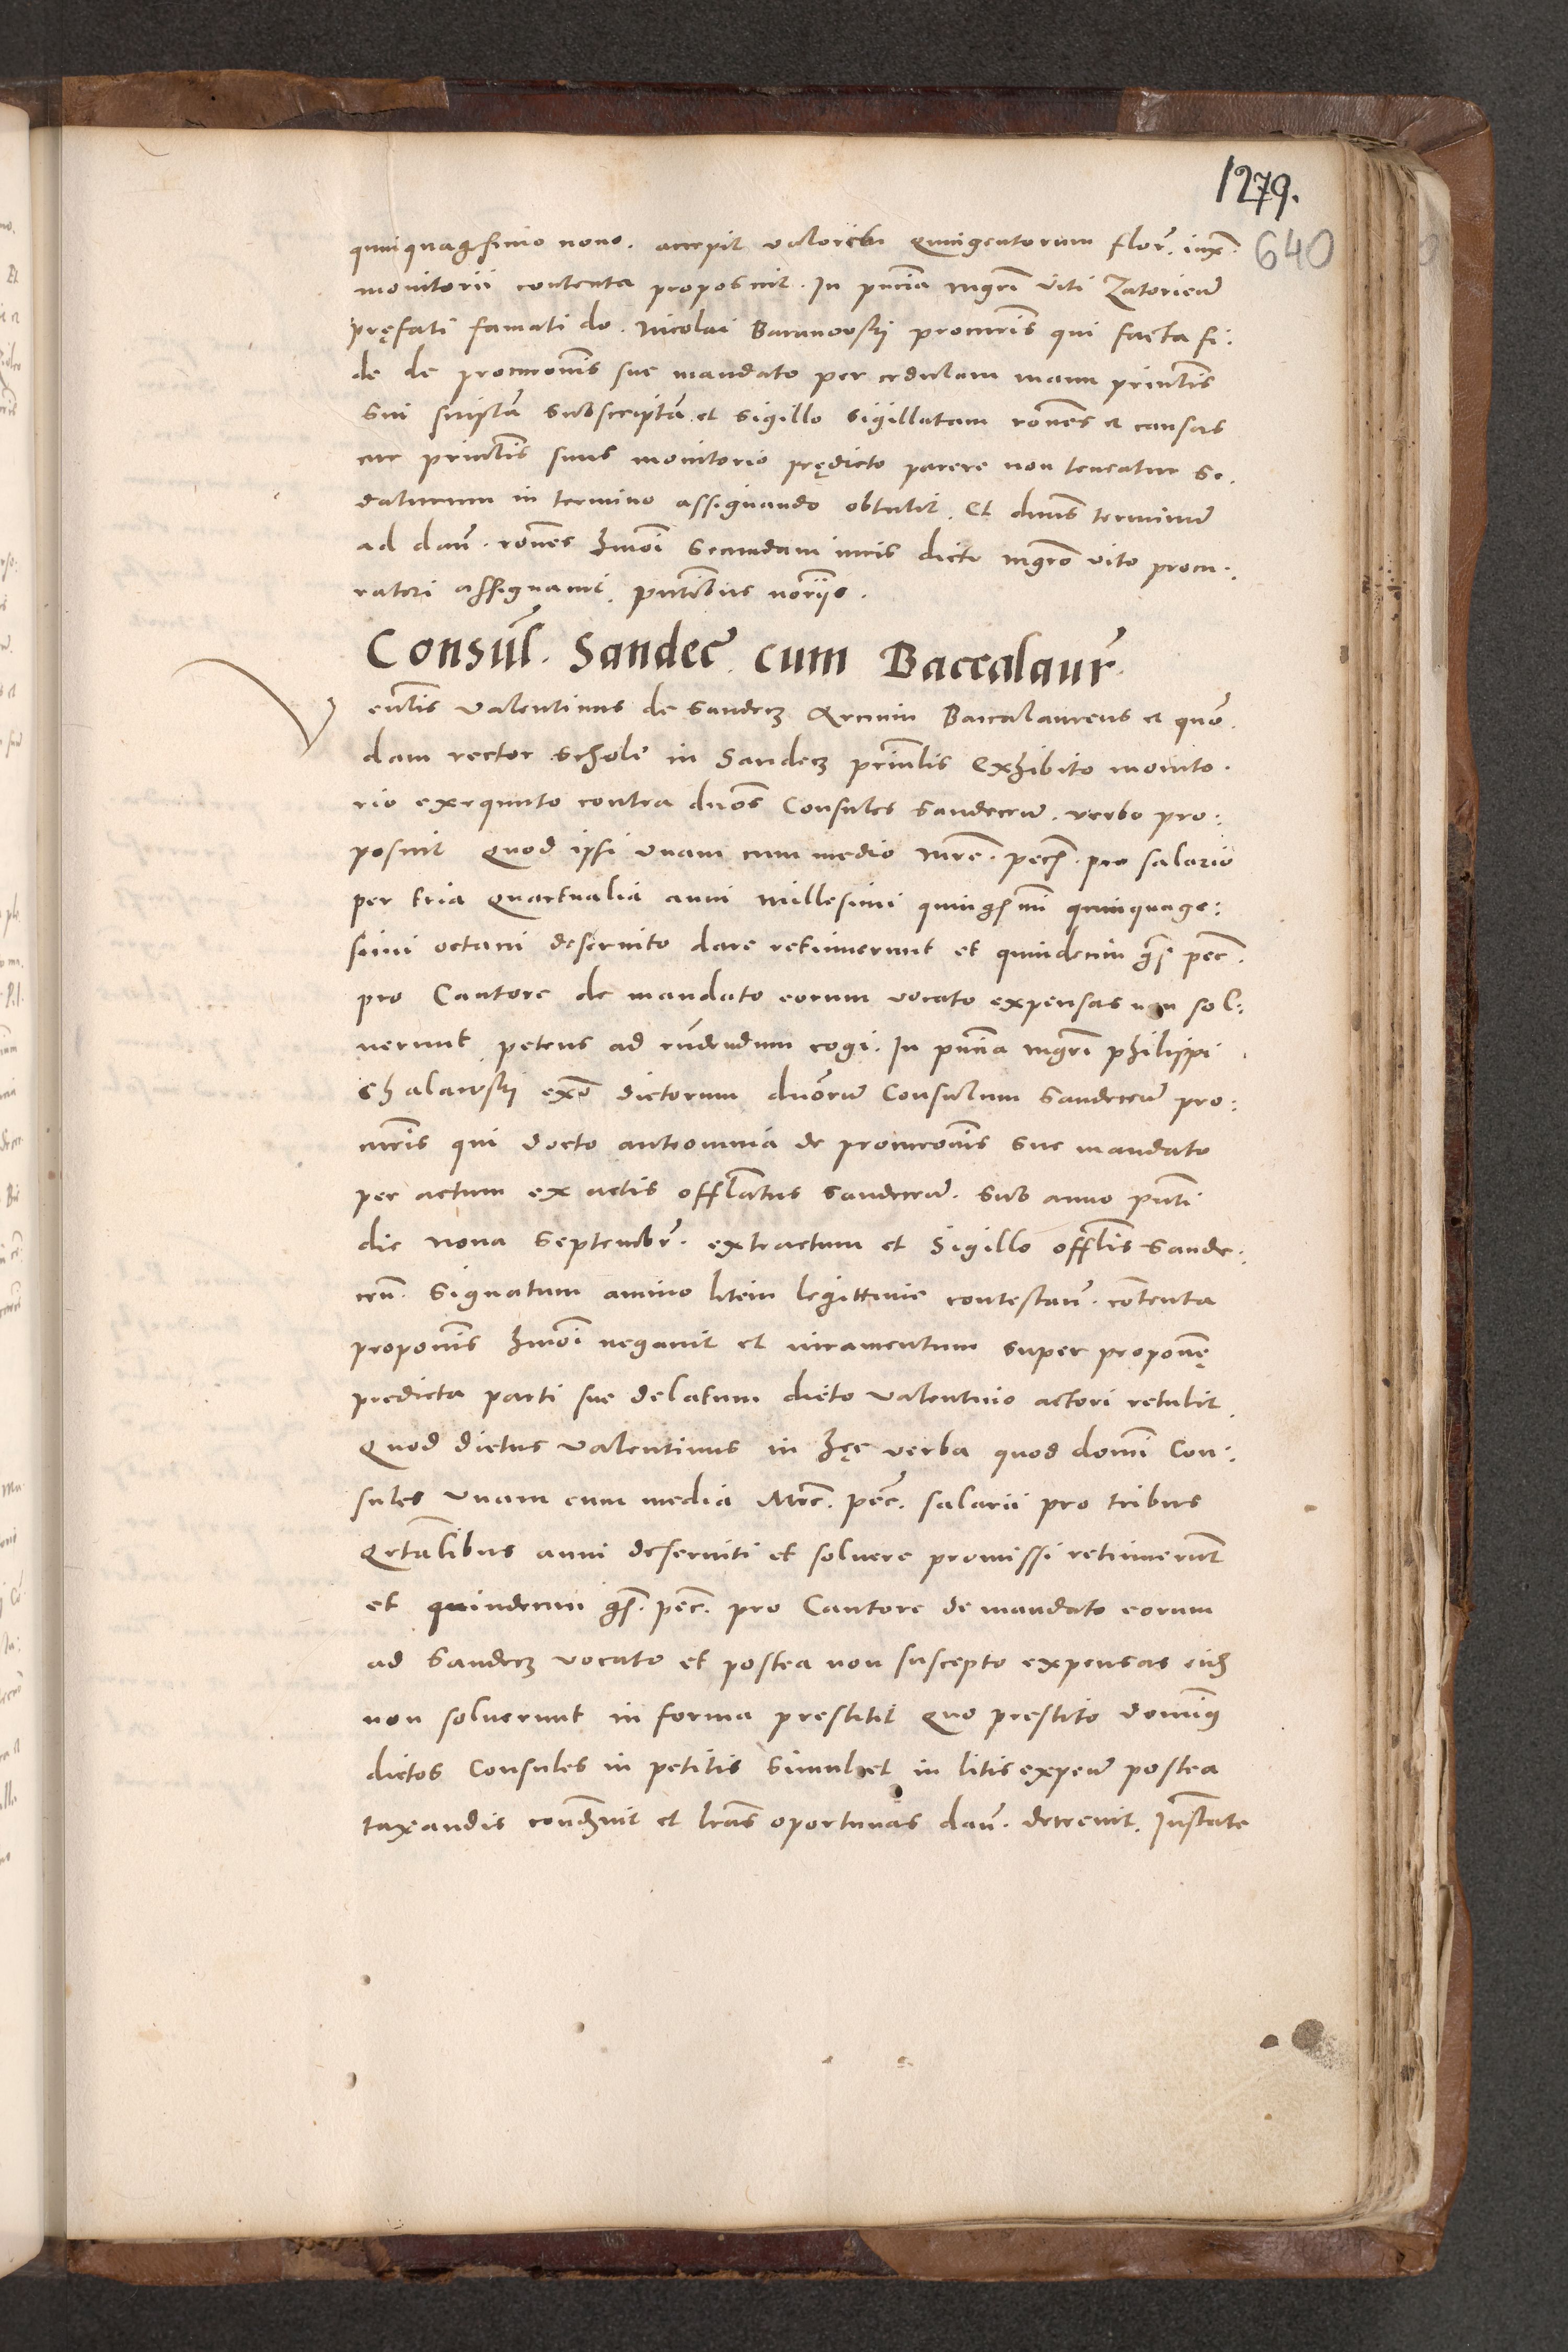 1279.
640
quinquagesimo nono. accepit valorem quingentorum flor̃. iuxͣ.
monitorii contenta proposuit. In pn̄cia mgr̄i viti Zatorien̄
pręfati famati do. Nicolai Baranowsky procur̄is qui facta fi:
de de procurōnis sue mandato per cedulam manu prin̄lis
sui scriptā subscriptā et sigillo sigillatam rōnes et causas
cur prin̄lis suus monitorio prędicto parere non teneatur se.
daturum in termino assignando obtulit. Et dn̄us terminū
ad dan̄. rōnes hm̄oi secundam iuris dicto mgr̄o vito procu:
ratori assignauit. pn̄tibus noriis.
Consul̄. Sandec̄. cum Baccalaur̃.
Ventīlis valentinus de Sandecz Artium Baccalaureus et quon̄.
dam rector schole in Sandecz prin̄lis exhibito monito.
rio exequuto contra dn̄os Consules Sandecen̄. verbo pro:
posuit Quod ipsi vnam cum medio mrc̄. pec̄. pro salario
per tria quartualia anni millesimi quingēmi quinquage:
simi octaui deseruito dare retinuerunt et quindecim gr̄. pec̄.
pro Cantore de mandato eorum vocato expensas non sol:
uerunt petens ad reddendum cogi. In pn̄cia mgr̄i philippi
Chalawsky ex̄o dictorum dn̄orū Consulum Sandecen̄ pro:
cur̄is qui docto anteomnia de procurōnis sue mandato
per actum ex actis officlatus Sandecen̄. sub anno pn̄ti
die nona Septembr̃. extractum et Sigillo officlis Sande:
cen̄. signatum animo litem legittime contestan̄. cōtenta
propōnis hm̄oi negauit et iuramentum super propōne
predicta parti sue delatum dicto valentino actori retulit.
Quod dictus valentinus in hęc verba quod domī Con:
sules vnam cum media Mrc̄. pec̄. salarii pro tribus
Qrtālibus anni deseruiti et soluere promissi retinuerūt
et quindecim gr̄. pec̄. pro Cantore de mandato eorum
ad Sandecz vocato et postea non suscepto expensas
non soluerunt in forma prestitit quo prestito domin9
dictos Consules in petitis simul et in litis expen̄ postea
taxandis condēnuit et lr̄as oportunas dan̄. decreuit. Instāte